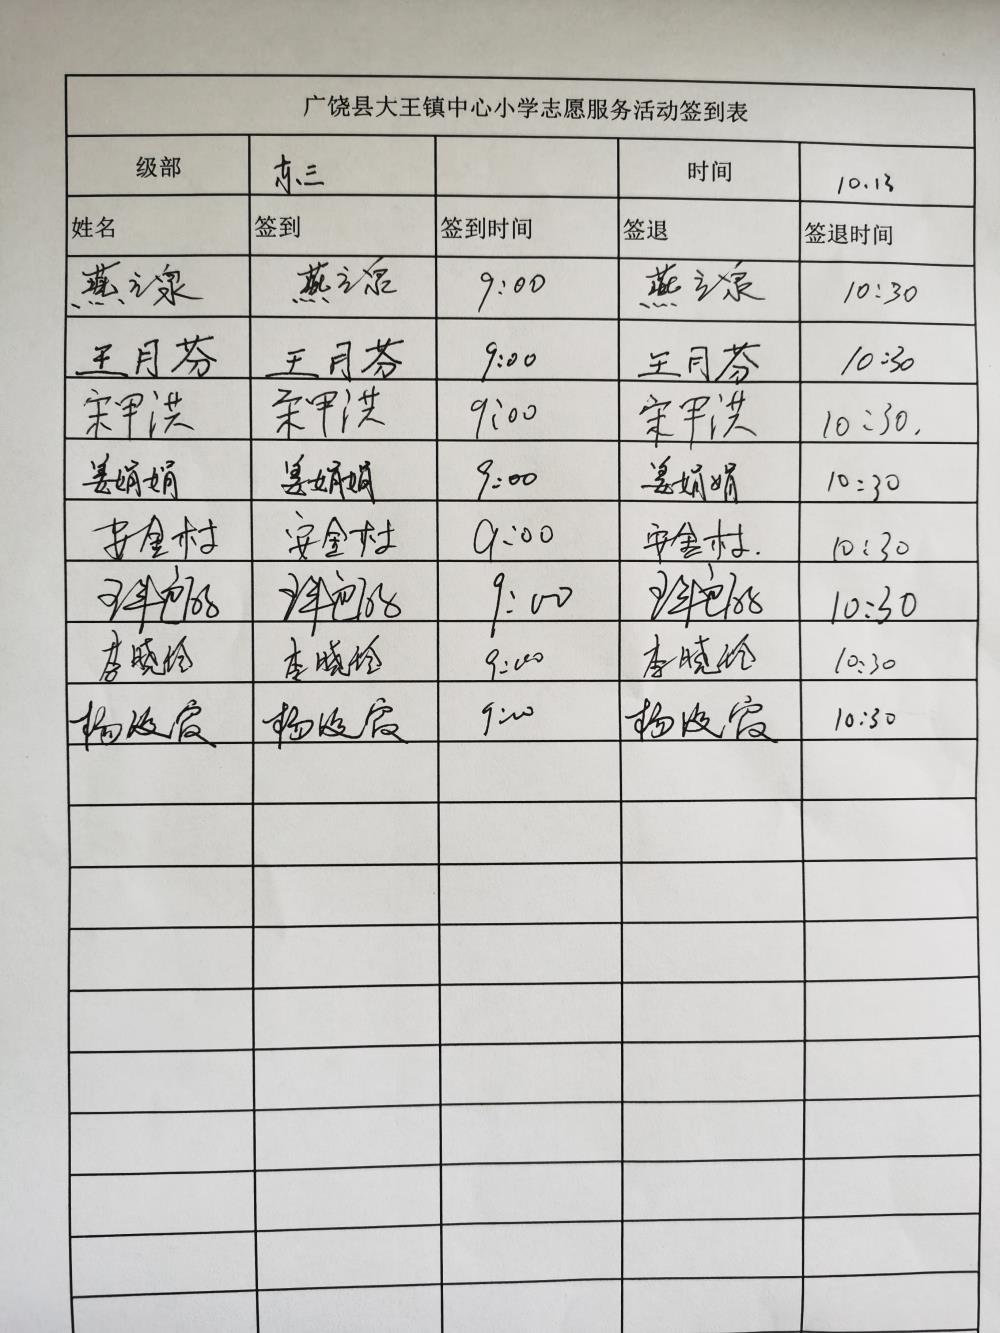 广饶县大王镇中心小学志愿服务活动签到表
级部 东三 时间 10.13
姓名 签到 签到时间 签退 签退时间
燕之泉 燕之泉 9:00 燕之泉 10:30
王月芬 王月芬 9:00 王月芬 10:30
宋甲洪 宋甲洪 9:00 宋甲洪 10:30.
姜娟娟 姜娟娟 9:00 姜娟娟 10:30
安金村 安金村 9:00 安金村. 10:30
9:00 10:30
李晓玲 李晓玲 9:00 李晓玲 10:30
杨 霞 杨 霞 9:00 杨 霞 10:30